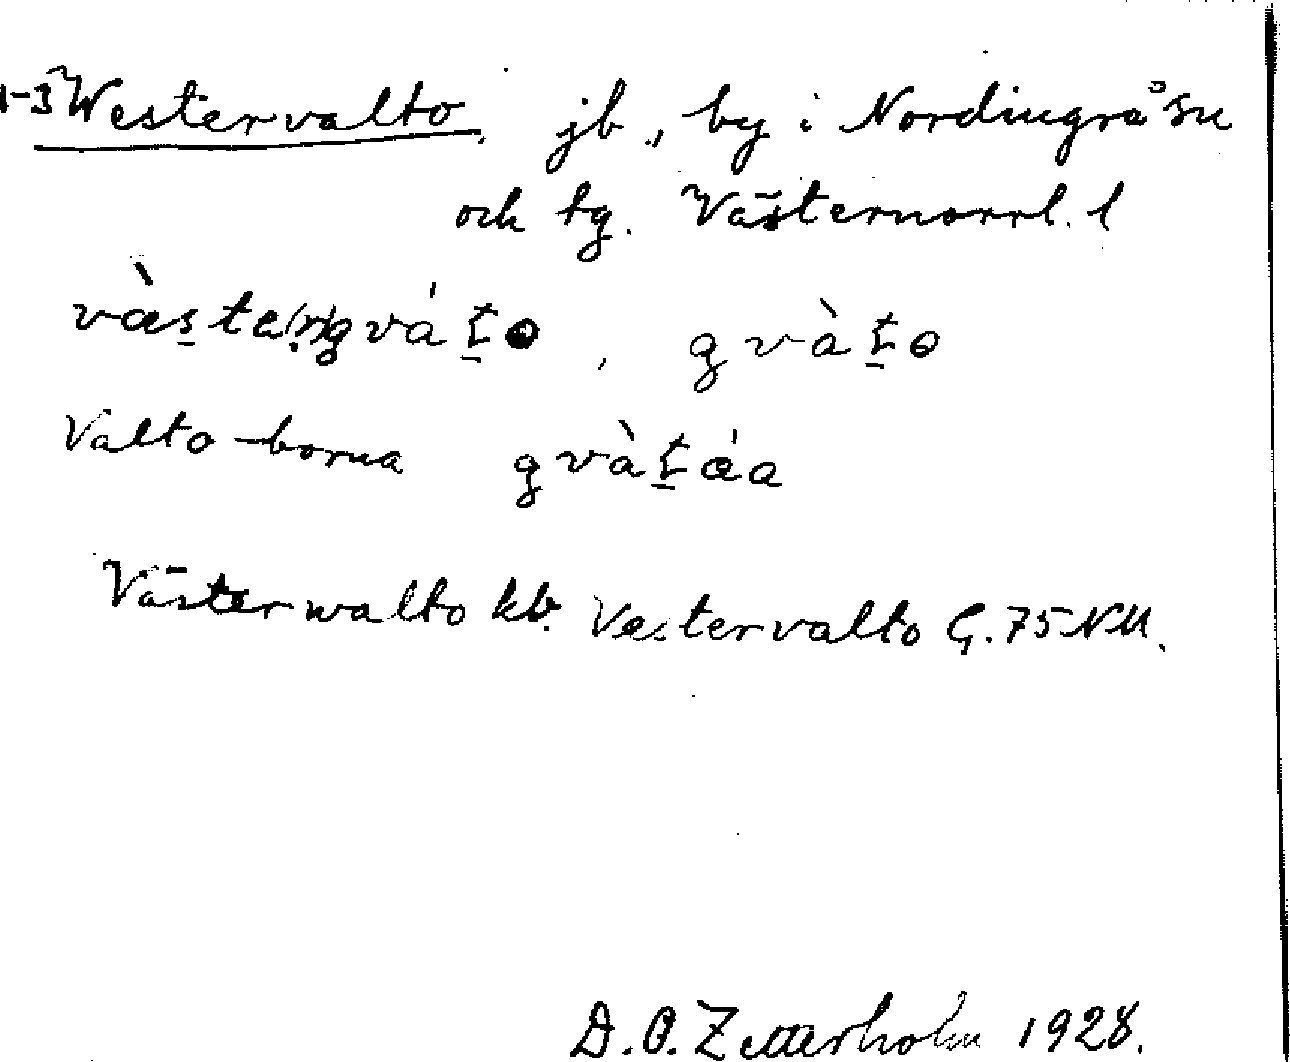 1-3 Westervalto, jb., by i Nordingrå sn
och tg. Västernorrl. l
Valto-borna
Västerwalto kb. Vestervalto G. 75 NM.
D. O. Zetterholm 1928.